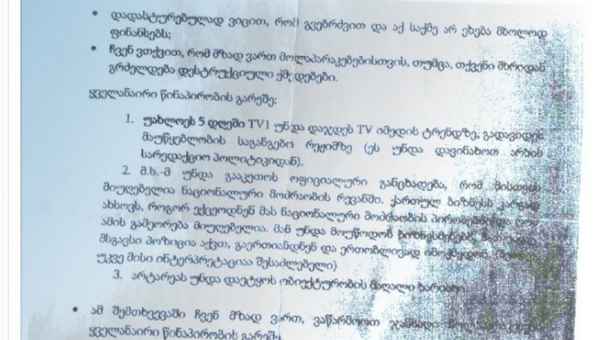 • დადასტურებულად ვიცით, რომ გვებრძვით და აქ საქმე არ ეხება მხოლოდ
ფინანსებს;
• ჩვენ ვთქვით, რომ მზად ვართ მოლაპარაკებებისთვის, თუმცა, თქვენი მხრიდან
გრძელდება დესტრუქციული ქმედებები.
ყველანაირი წინაპირობის გარეშე:
1. უახლოეს 5 დღეში TV1 უნდა დაჯდეს TV იმედის ტრენდზე, გადავიდეს
მაუწყებლობის საგანგებო რეჟიმზე (ეს უნდა დავინახოთ არხის
სარედაქციო პოლიტიკიდან).
2. მ.ხ.-მ უნდა გააკეთოს ოფიციალური განცხადება, რომ მისთვის
მიუღებელია ნაციონალური მოძრაობის რევანში, ქართულ ბიზნესს კარგად
ახსოვს, როგორ ექცეოდნენ მას ნაციონალური მოძრაობის პირობებში და
ამის გამეორება მიუღებელია. მან უნდა მოუწოდოს ბიზნესმენებს,
მსგავსი პოზიცია აქვთ, გაერთიანდნენ და ერთობლივად იმოქმედონ.
უკვე მისი ინტერპრეტაციაა შესაძლებელი)
3. არტარეას უნდა დაეტყოს ობიექტურობის მაღალი ხარისხი
• ამ შემთხვევაში ჩვენ მზად ვართ, ვაწარმოოთ
ყველანაირი წინაპირობის გარეშე;